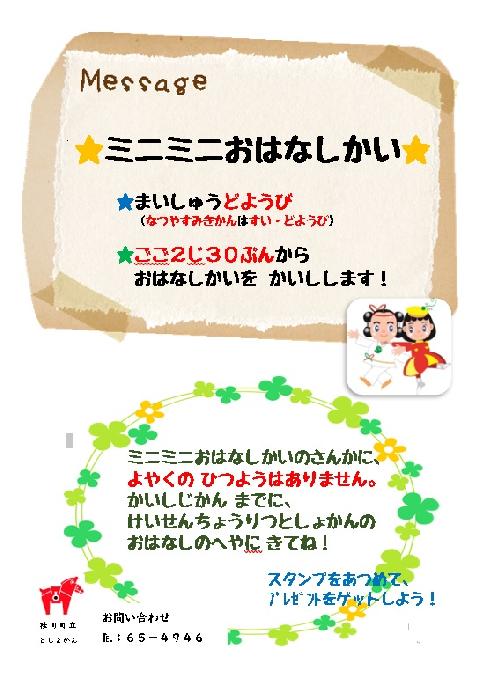 Message
★ミニミニおはなしかい★
★まいしゅうどようび
(なつやすみきかんはすい・どようび)
★ごご2じ30ぷんから
おはなしかいを かいしします！
ミニミニおはなしかいのさんかに、
よやくの ひつようはありません。
かいしじかん までに、
けいせんちょうりつとしょかんの
おはなしのへやに きてね！
スタンプをあつめて、
プレゼントをゲットしよう！
桂川町立
としょかん
お問い合わせ
℡：65－4946